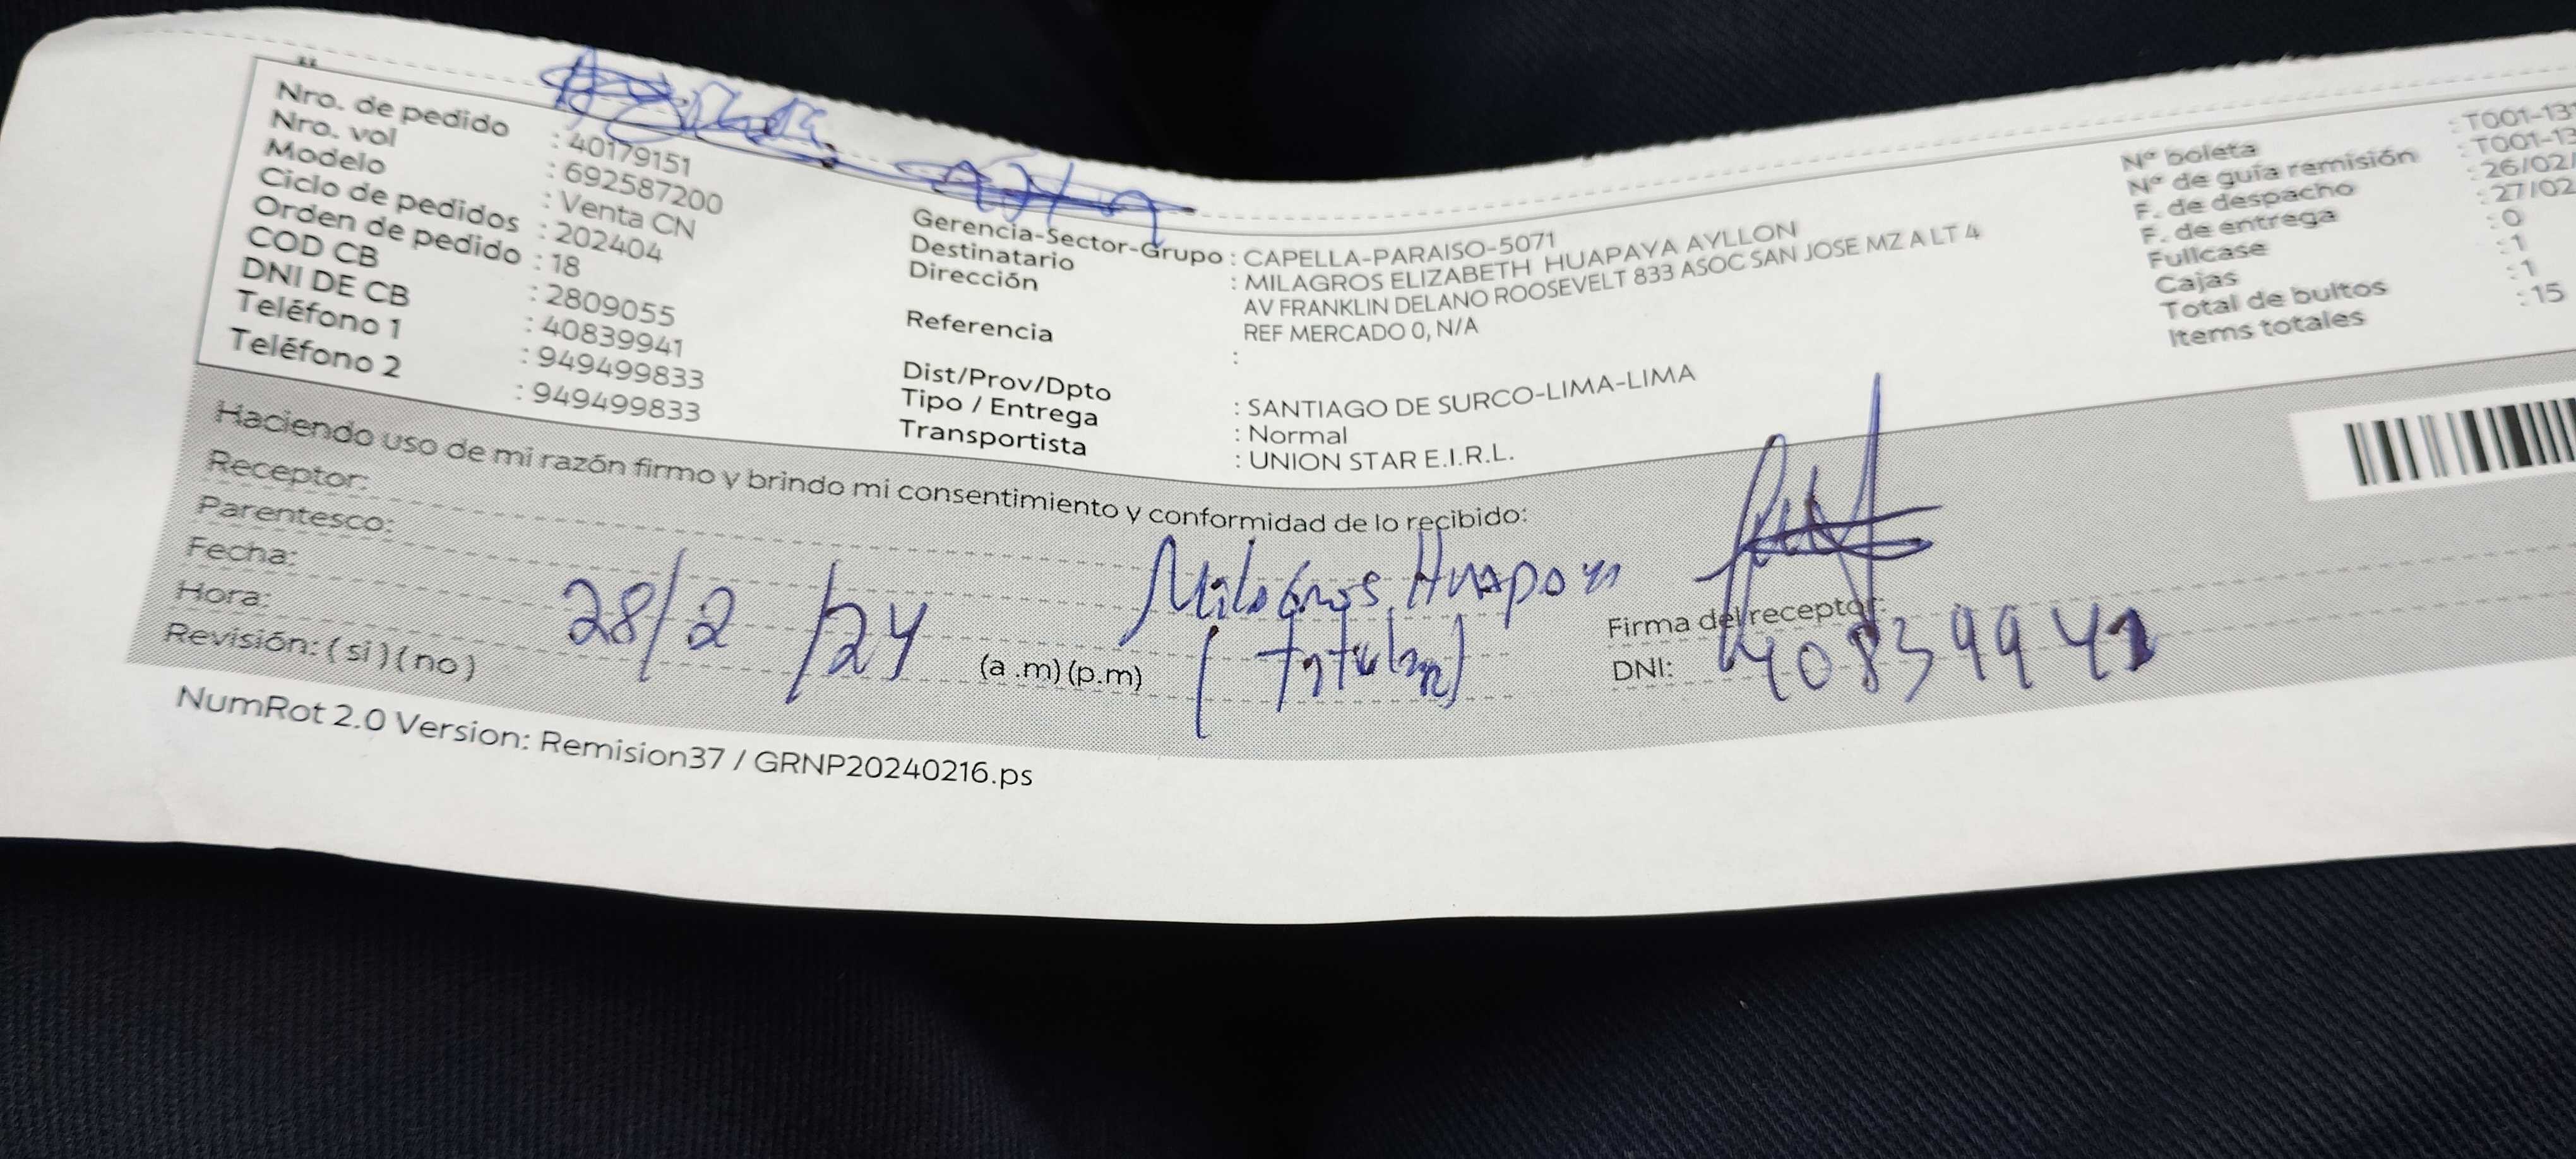 Nro. de pedido : 40179151
Nro. vol : 692587200
Modelo : Venta CN
Ciclo de pedidos : 202404
Orden de pedido : 18
COD CB : 2809055
DNI DE CB : 40839941
Teléfono 1 : 949499833
Teléfono 2 : 949499833
Gerencia-Sector-Grupo : CAPELLA-PARAISO-5071
Destinatario : MILAGROS ELIZABETH HUAPAYA AYLLON
Dirección AV FRANKLIN DELANO ROOSEVELT 833 ASOC SAN JOSE MZ A LT 4
REF MERCADO 0, N/A
Referencia :
Dist/Prov/Dpto : SANTIAGO DE SURCO-LIMA-LIMA
Tipo / Entrega : Normal
Transportista : UNION STAR E.I.R.L.
N° boleta : T001-13
N° de guía remisión : T001-13
F. de despacho : 26/02/
F. de entrega : 27/02
Fullcase : 0
Cajas : 1
Total de bultos : 1
Items totales : 15
Haciendo uso de mi razón firmo y brindo mi consentimiento y conformidad de lo recibido:
Receptor: Milagros Huapaya
Parentesco: (Titular)
Fecha: 28/2/24
Hora: (a .m) (p.m)
Revisión: ( si ) ( no )
Firma del receptor:
DNI: 40839941
NumRot 2.0 Version: Remision37 / GRNP20240216.ps